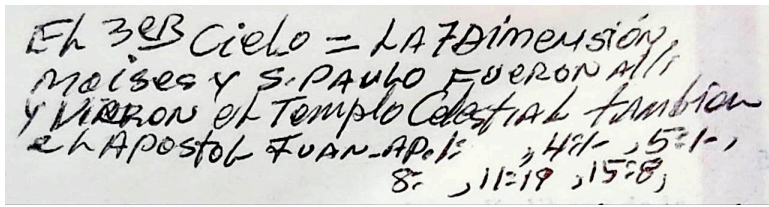 El 3er Cielo = LA 7 Dimensión,
Moises y S. PAULO FUERON Alli
y VIERON el Templo Celestial tambien
el APostol JUAN-AP. 1: , 4:1- , 5:1- ,
8: , 11:19 , 15:8,